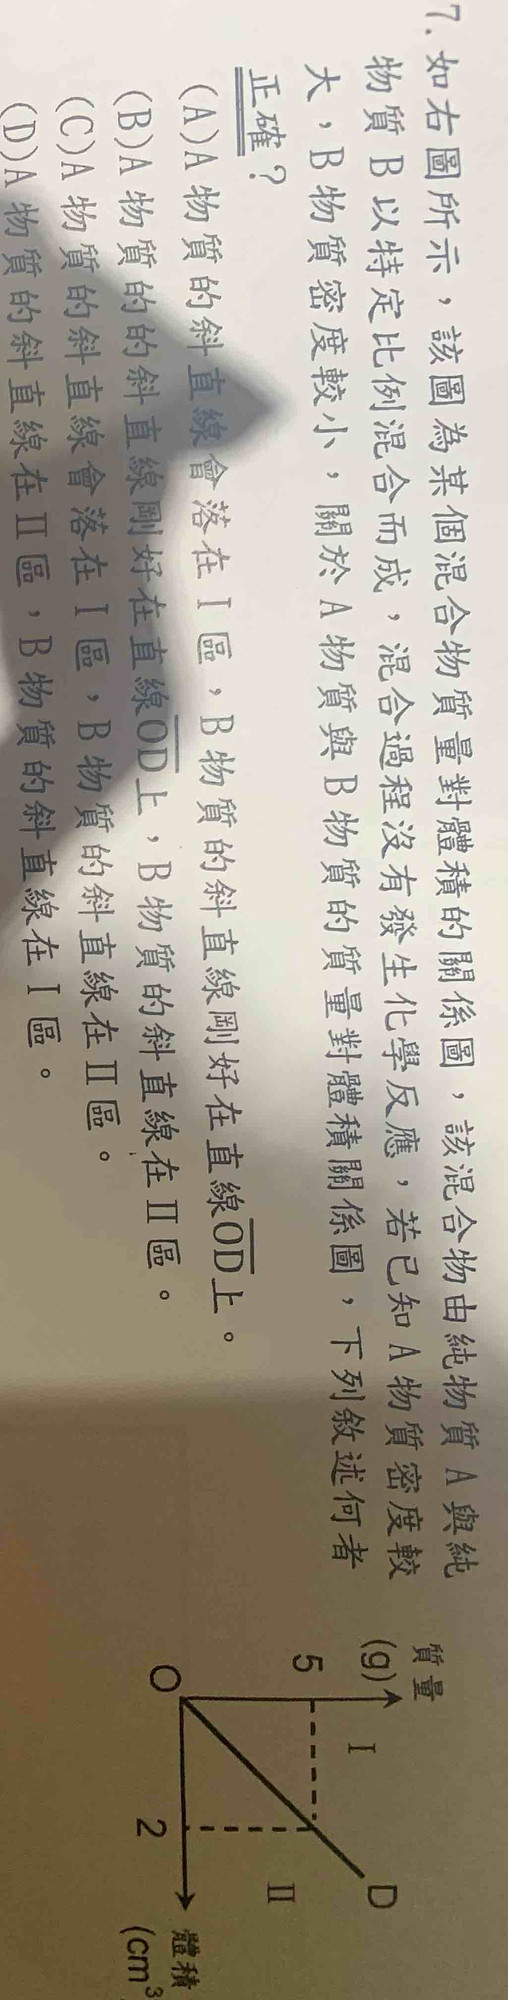 7. 如右圖所示，該圖為某個混合物質量對體積的關係圖，該混合物由純物質 A 與純
物質 B 以特定比例混合而成，混合過程沒有發生化學反應，若已知 A 物質密度較
大，B 物質密度較小，關於 A 物質與 B 物質的質量對體積關係圖，下列敘述何者
正確？
(A)A 物質的斜直線會落在 I 區，B 物質的斜直線剛好在直線OD上。
(B)A 物質的的斜直線剛好在直線OD上，B 物質的斜直線在 II 區。
(C)A 物質的斜直線會落在 I 區，B 物質的斜直線在 II 區。
(D)A 物質的斜直線在 II 區，B 物質的斜直線在 I 區。
質量
(g)
I
D
5
II
O
2
體積
(cm³